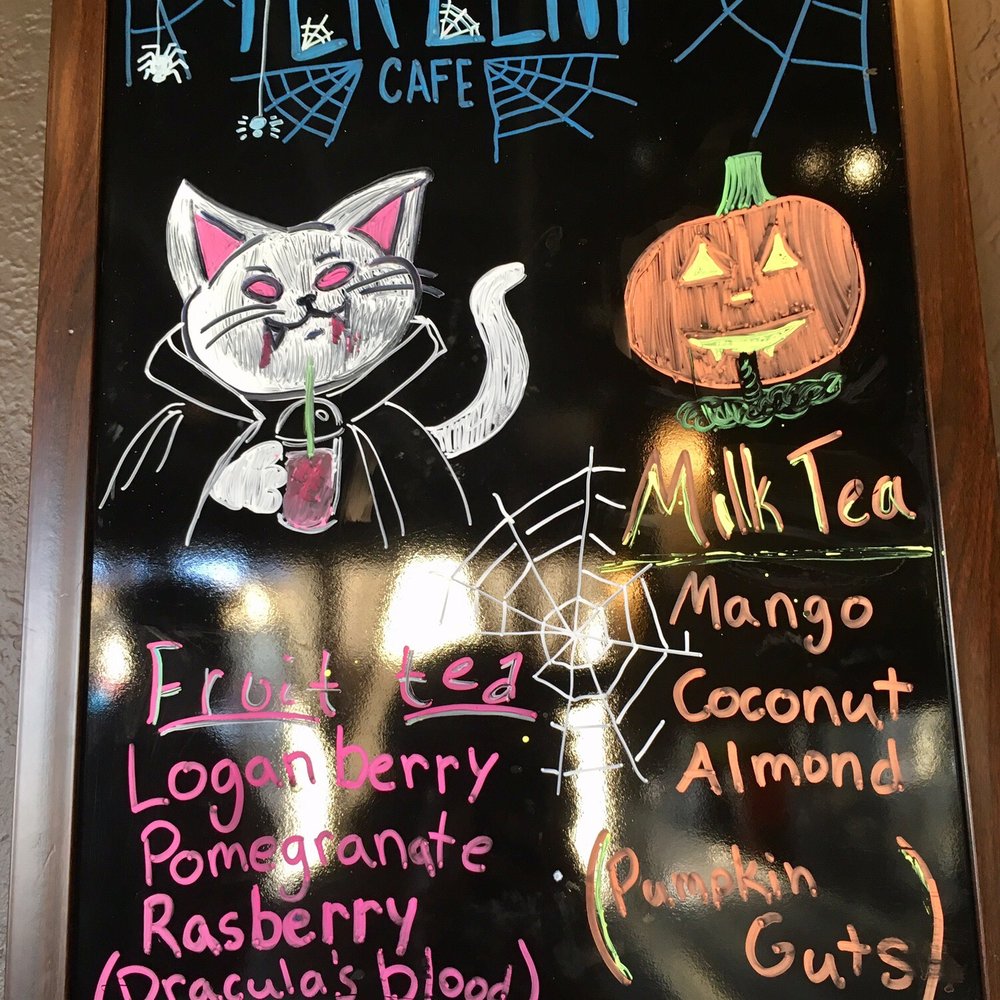 CAFE
Fruit tea
Loganberry
Pomegranate
Rasberry
(Dracula's blood)
Milk Tea
Mango
Coconut
Almond
(Pumpkin
Guts)